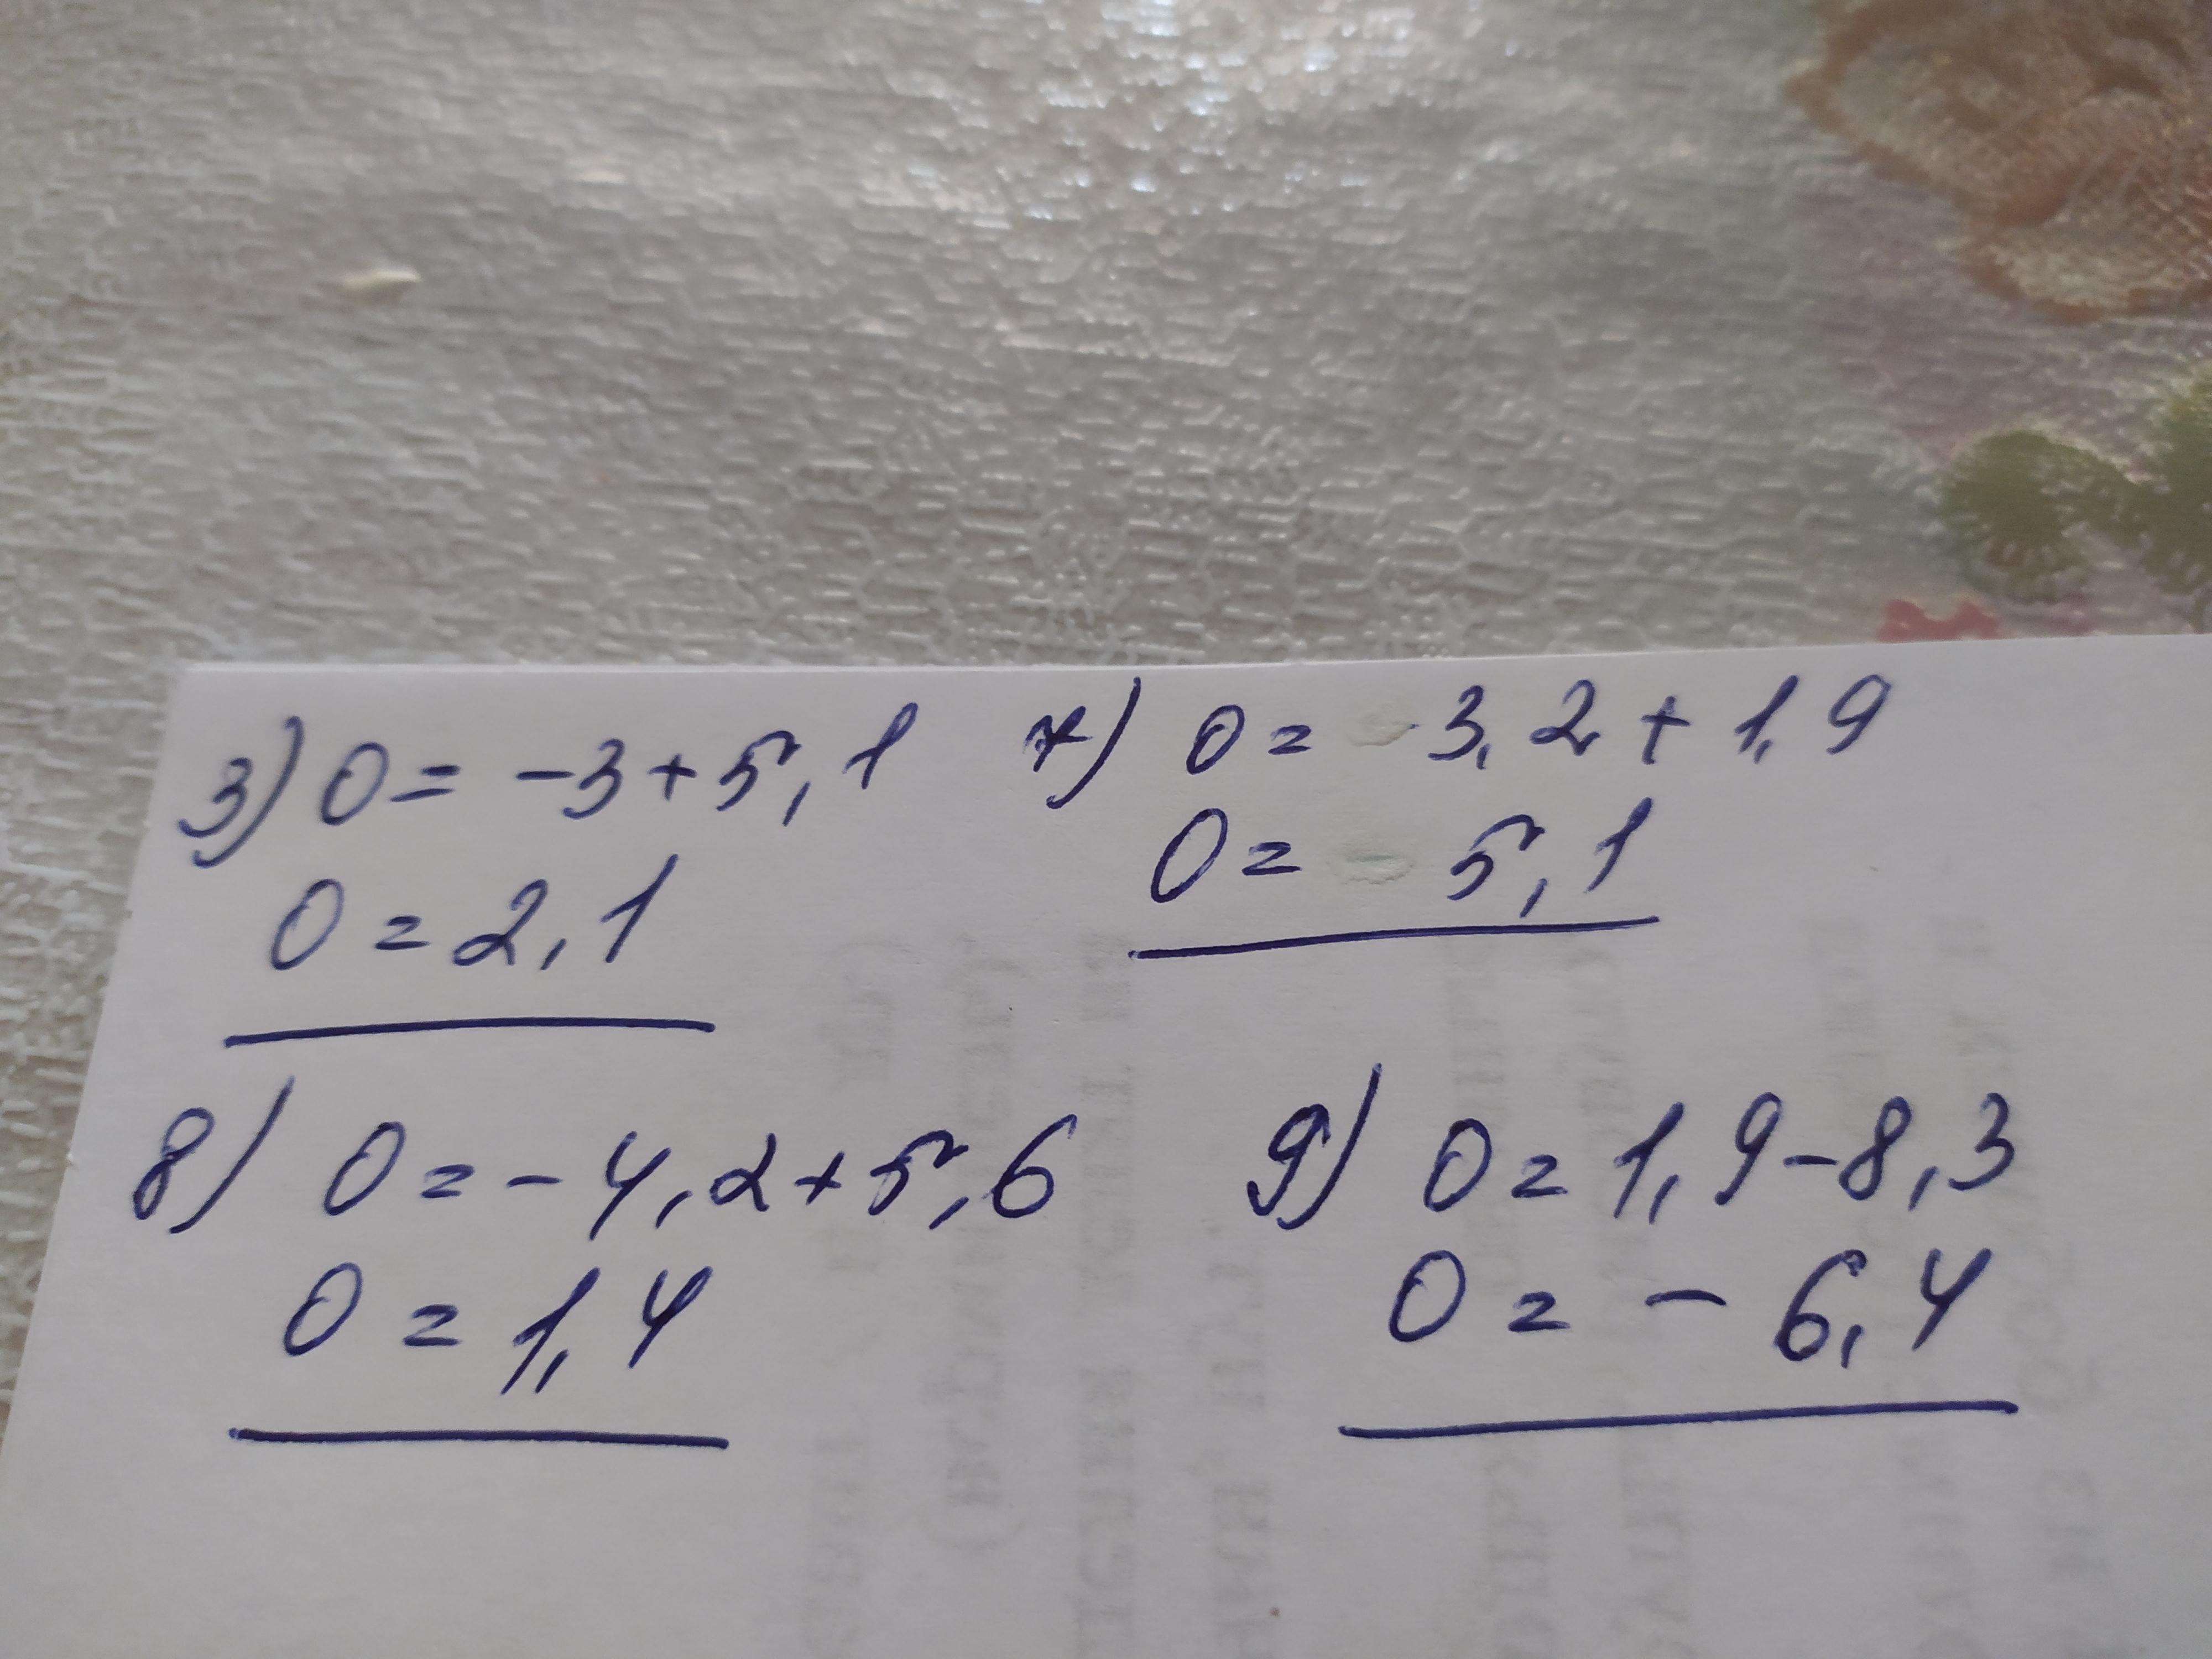 3) 0 = -3 + 5,1
0 = 2,1
7) 0 = 3,2 + 1,9
0 = 5,1
8) 0 = -4,2 + 5,6
0 = 1,4
9) 0 = 1,9 - 8,3
0 = - 6,4